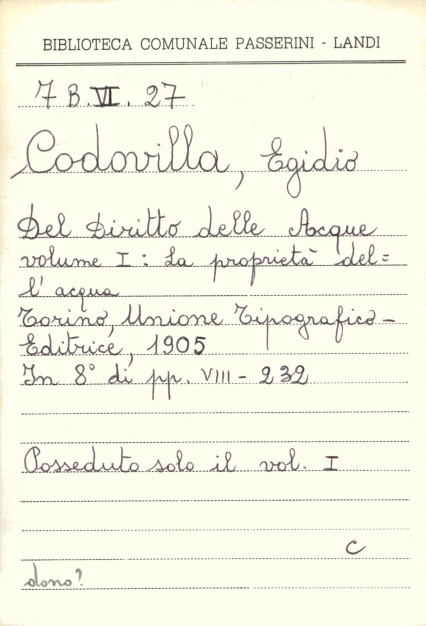 BIBLIOTECA COMUNALE PASSERINI - LANDI
7 B. VI. 27
Codovilla, Egidio
Del Diritto delle Acque
volume I: La proprietà del=
l'acqua
Torino, Unione Tipografico-
Editrice, 1905
In 8° di pp. VIII - 232
Posseduto solo il vol. I
C
dono?